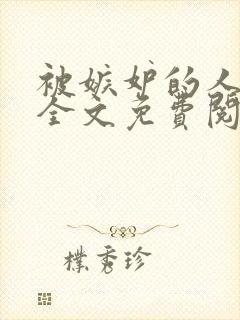 被嫉妒的人
全文免費閱
樸秀珍